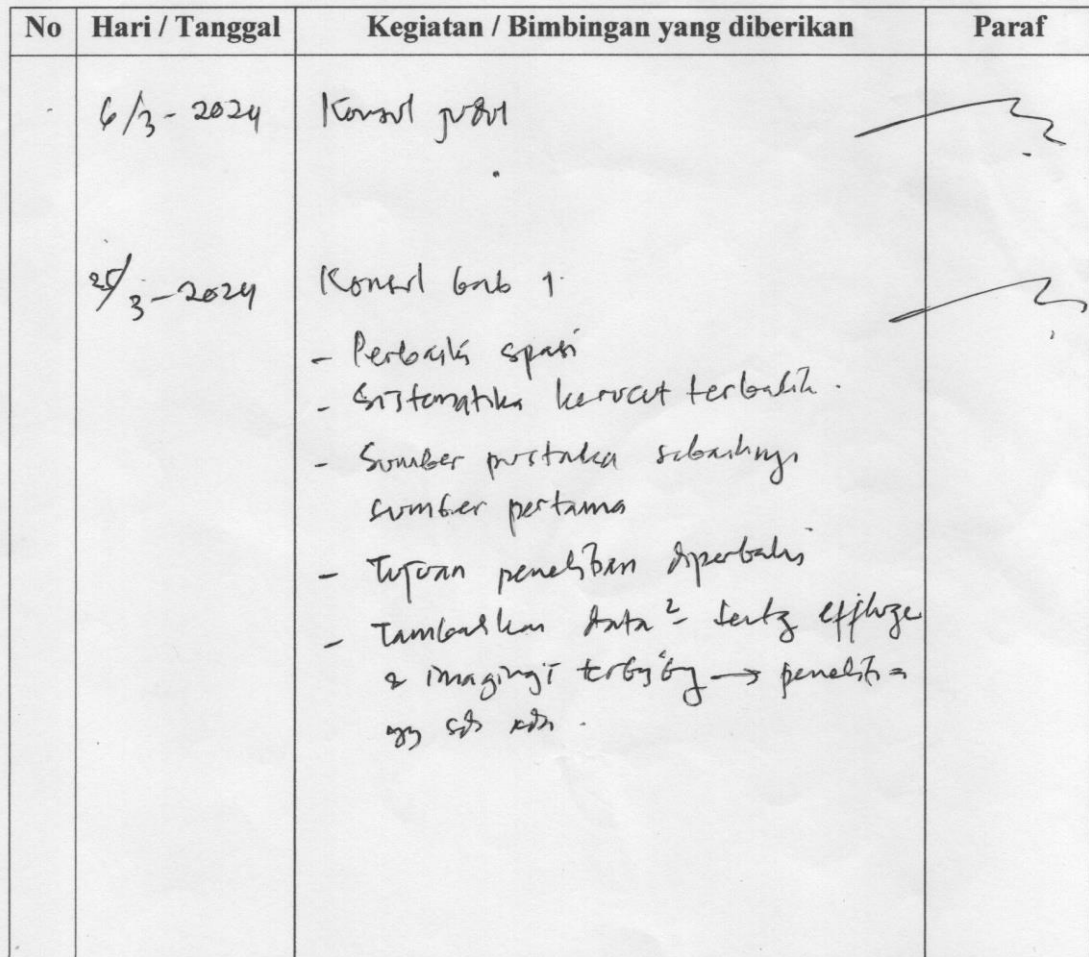 No Hari / Tanggal Kegiatan / Bimbingan yang diberikan Paraf
6/3 - 2024 Konsul judul
25/3 - 2024 Konsul bab 1.
- Perbaiki spasi
- Sistematika kerucut terbalik.
- Sumber pustaka sebaiknya
sumber pertama
- Tujuan penelitian diperbaiki
- Tambahkan data2
& imaging → penelitian
yg sdh ada.